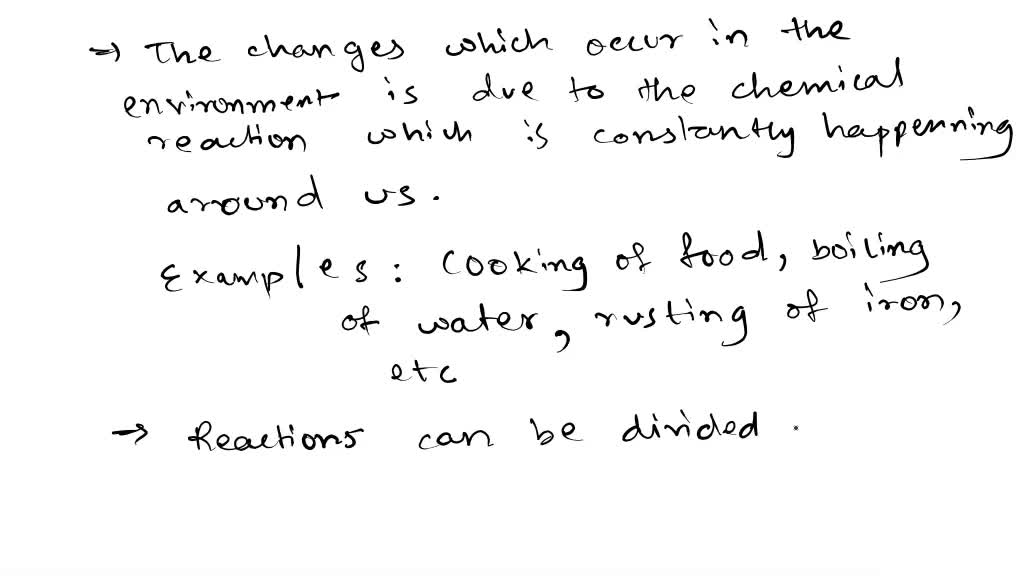 → The changes which occur in the
environment is due to the chemical
reaction which is constantly happenning
around us.
Examples: Cooking of food, boiling
of water, rusting of iron,
etc
→ Reactions can be divided.